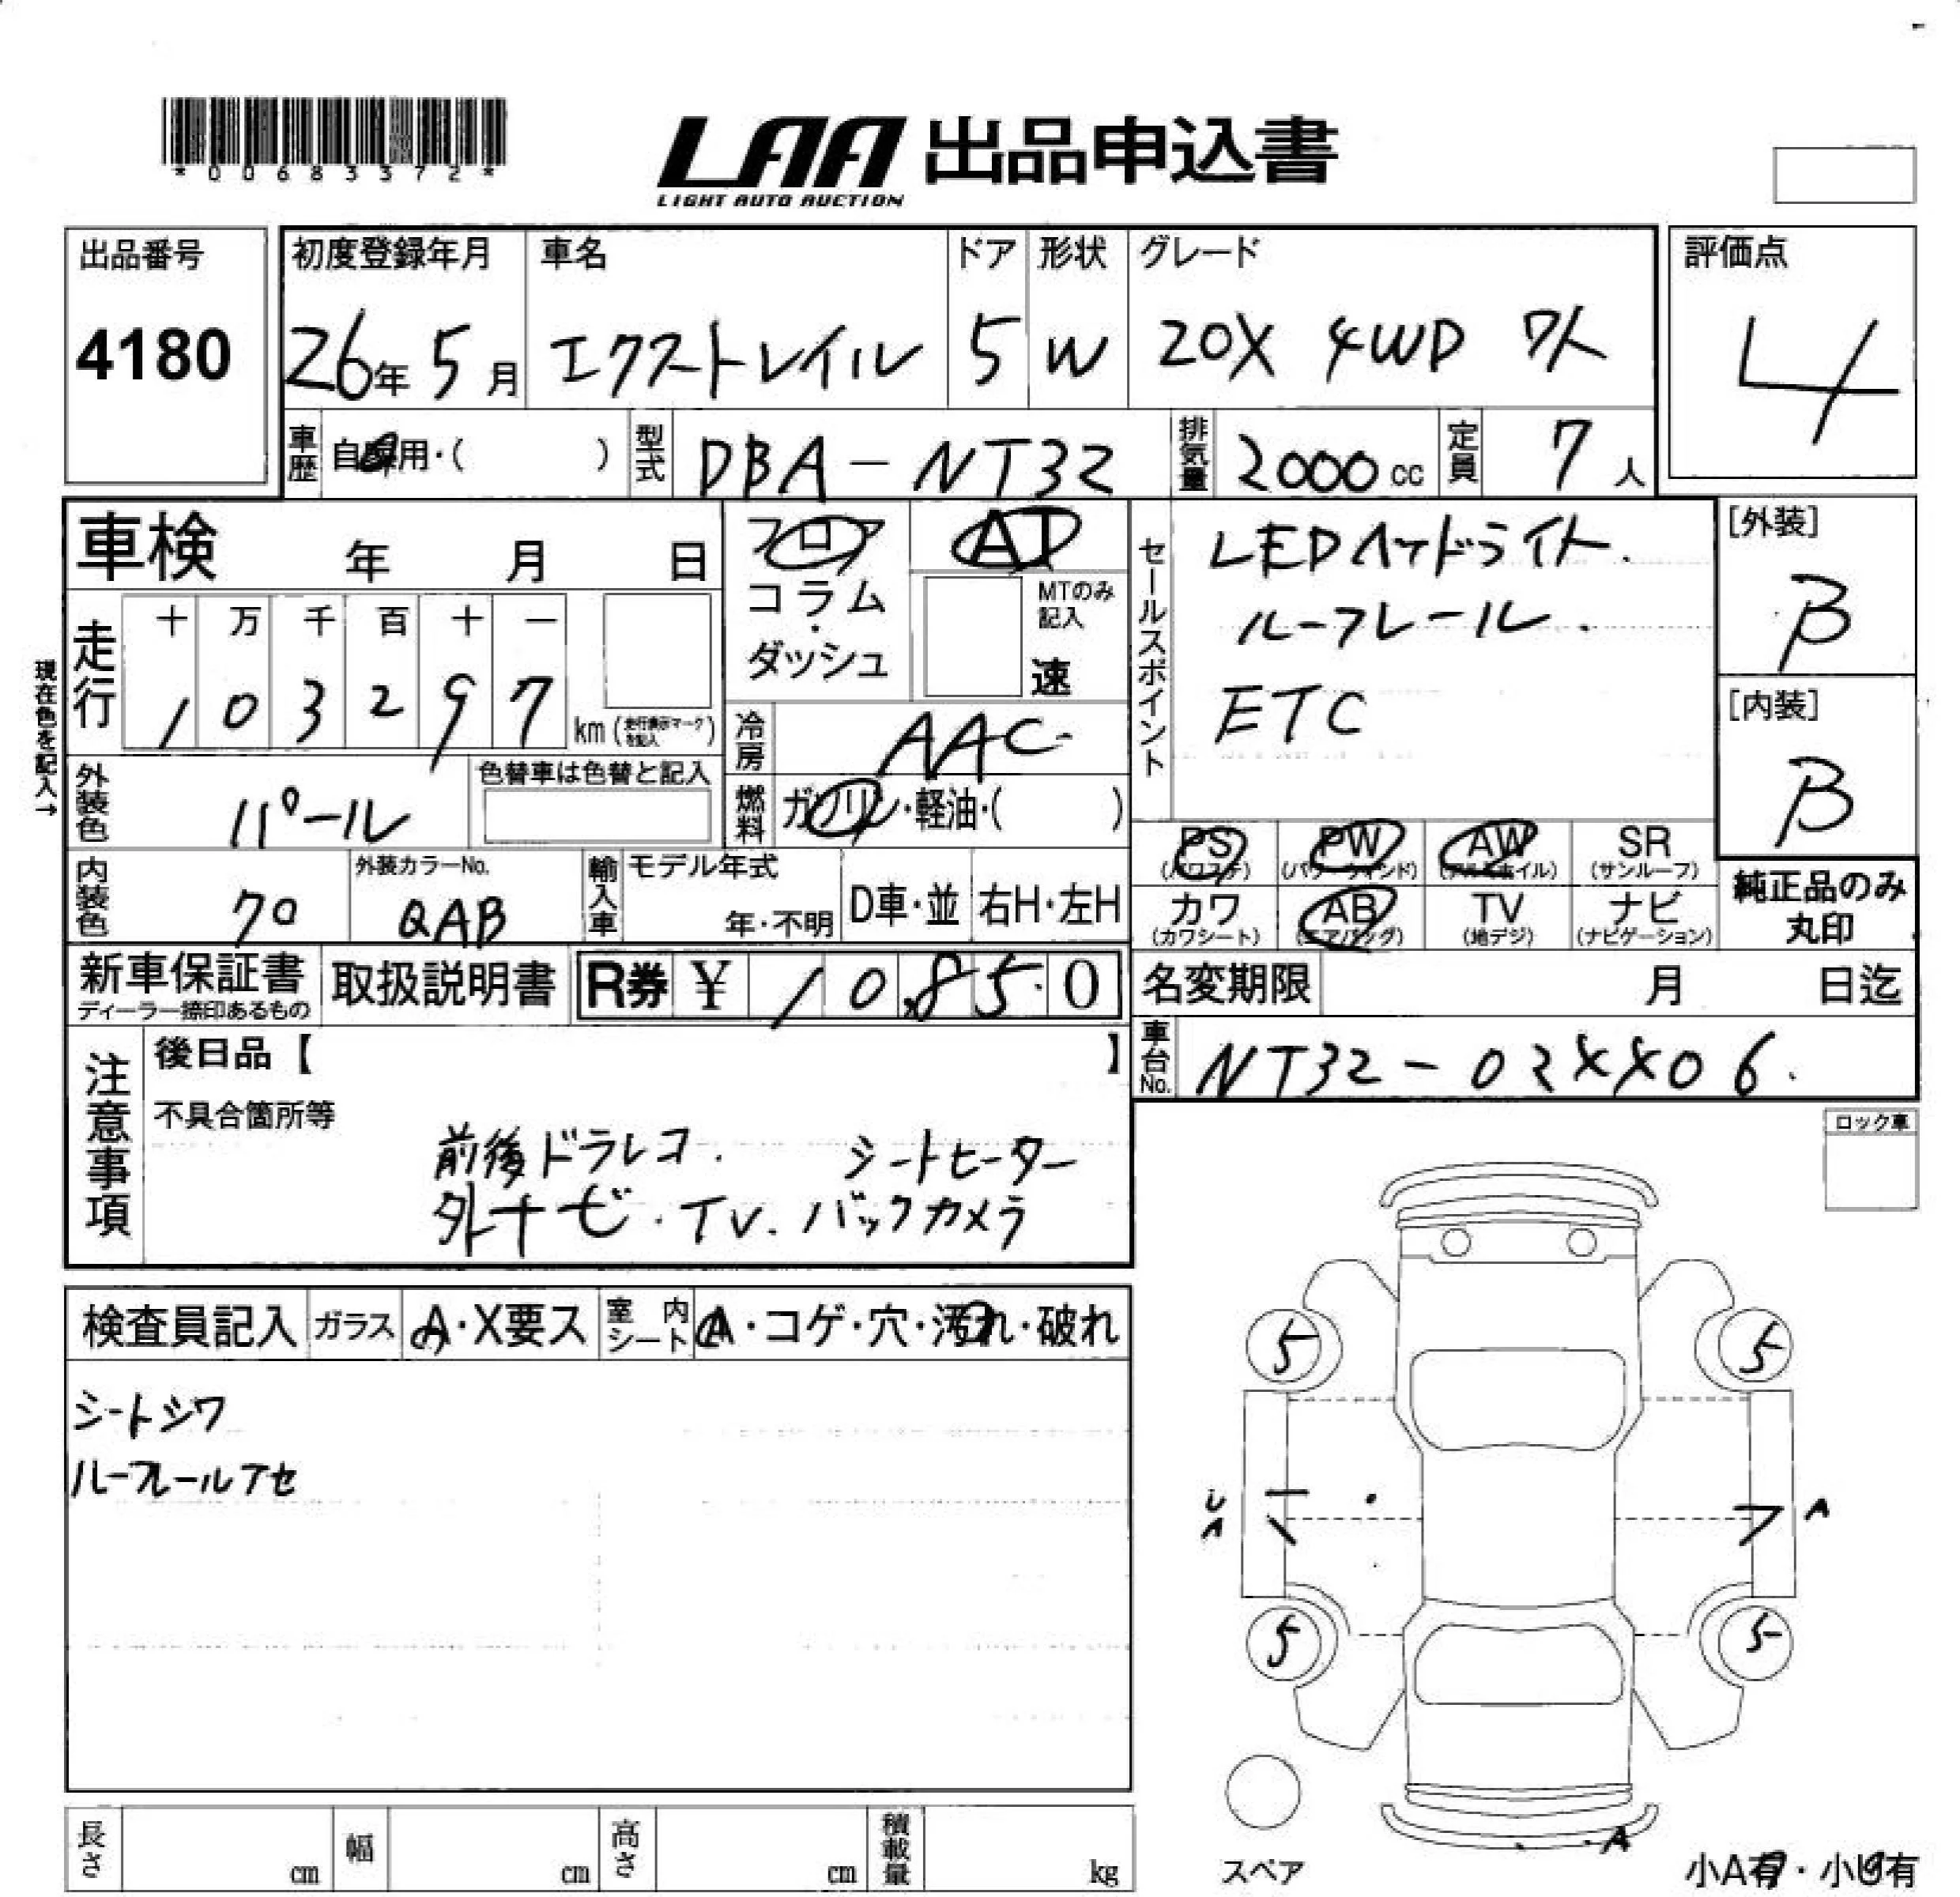 *00683372*
LAA 出品申込書
LIGHT AUTO AUCTION
出品番号
4180
初度登録年月
26年 5月
車名
エクストレイル
ドア
5
形状
W
グレード
20X 4WD 7人
評価点
4
車歴 自家用・( )
型式 DBA-NT32
排気量 2000cc
定員 7人
車検 年 月 日
フロア
コラム
・
ダッシュ
AT
MTのみ
記入
速
セールスポイント
LEDヘッドライト.
ルーフレール.
ETC
[外装]
B
[内装]
B
現在色を記入→
走行
十 万 千 百 十 一
1 0 3 2 9 7
km (走行表示マークを記入)
冷房 AAC
外装色 パール
色替車は色替と記入
燃料 ガソリン・軽油・( )
PS
(パワステ)
PW
(パワーウィンド)
AW
(アルミホイル)
SR
(サンルーフ)
カワ
(カワシート)
AB
(エアバッグ)
TV
(地デジ)
ナビ
(ナビゲーション)
純正品のみ
丸印
内装色
外装カラーNo.
QAB
輸入車
モデル年式
年・不明
D車・並
右H・左H
新車保証書
ディーラー捺印あるもの
取扱説明書
R券 ¥ 10,850
名変期限 月 日迄
車台No. NT32-02XX06.
注意事項
後日品【 】
不具合箇所等
前後ドラレコ. シートヒーター
外ナビ・TV. バックカメラ
ロック車
検査員記入
ガラス A・X要ス
室内シート A・コゲ・穴・汚れ・破れ
シートシワ
ルーフレールアセ
5
5
A
5
5
A
スペア
小A有・小U有
長さ cm
幅 cm
高さ cm
積載量 kg